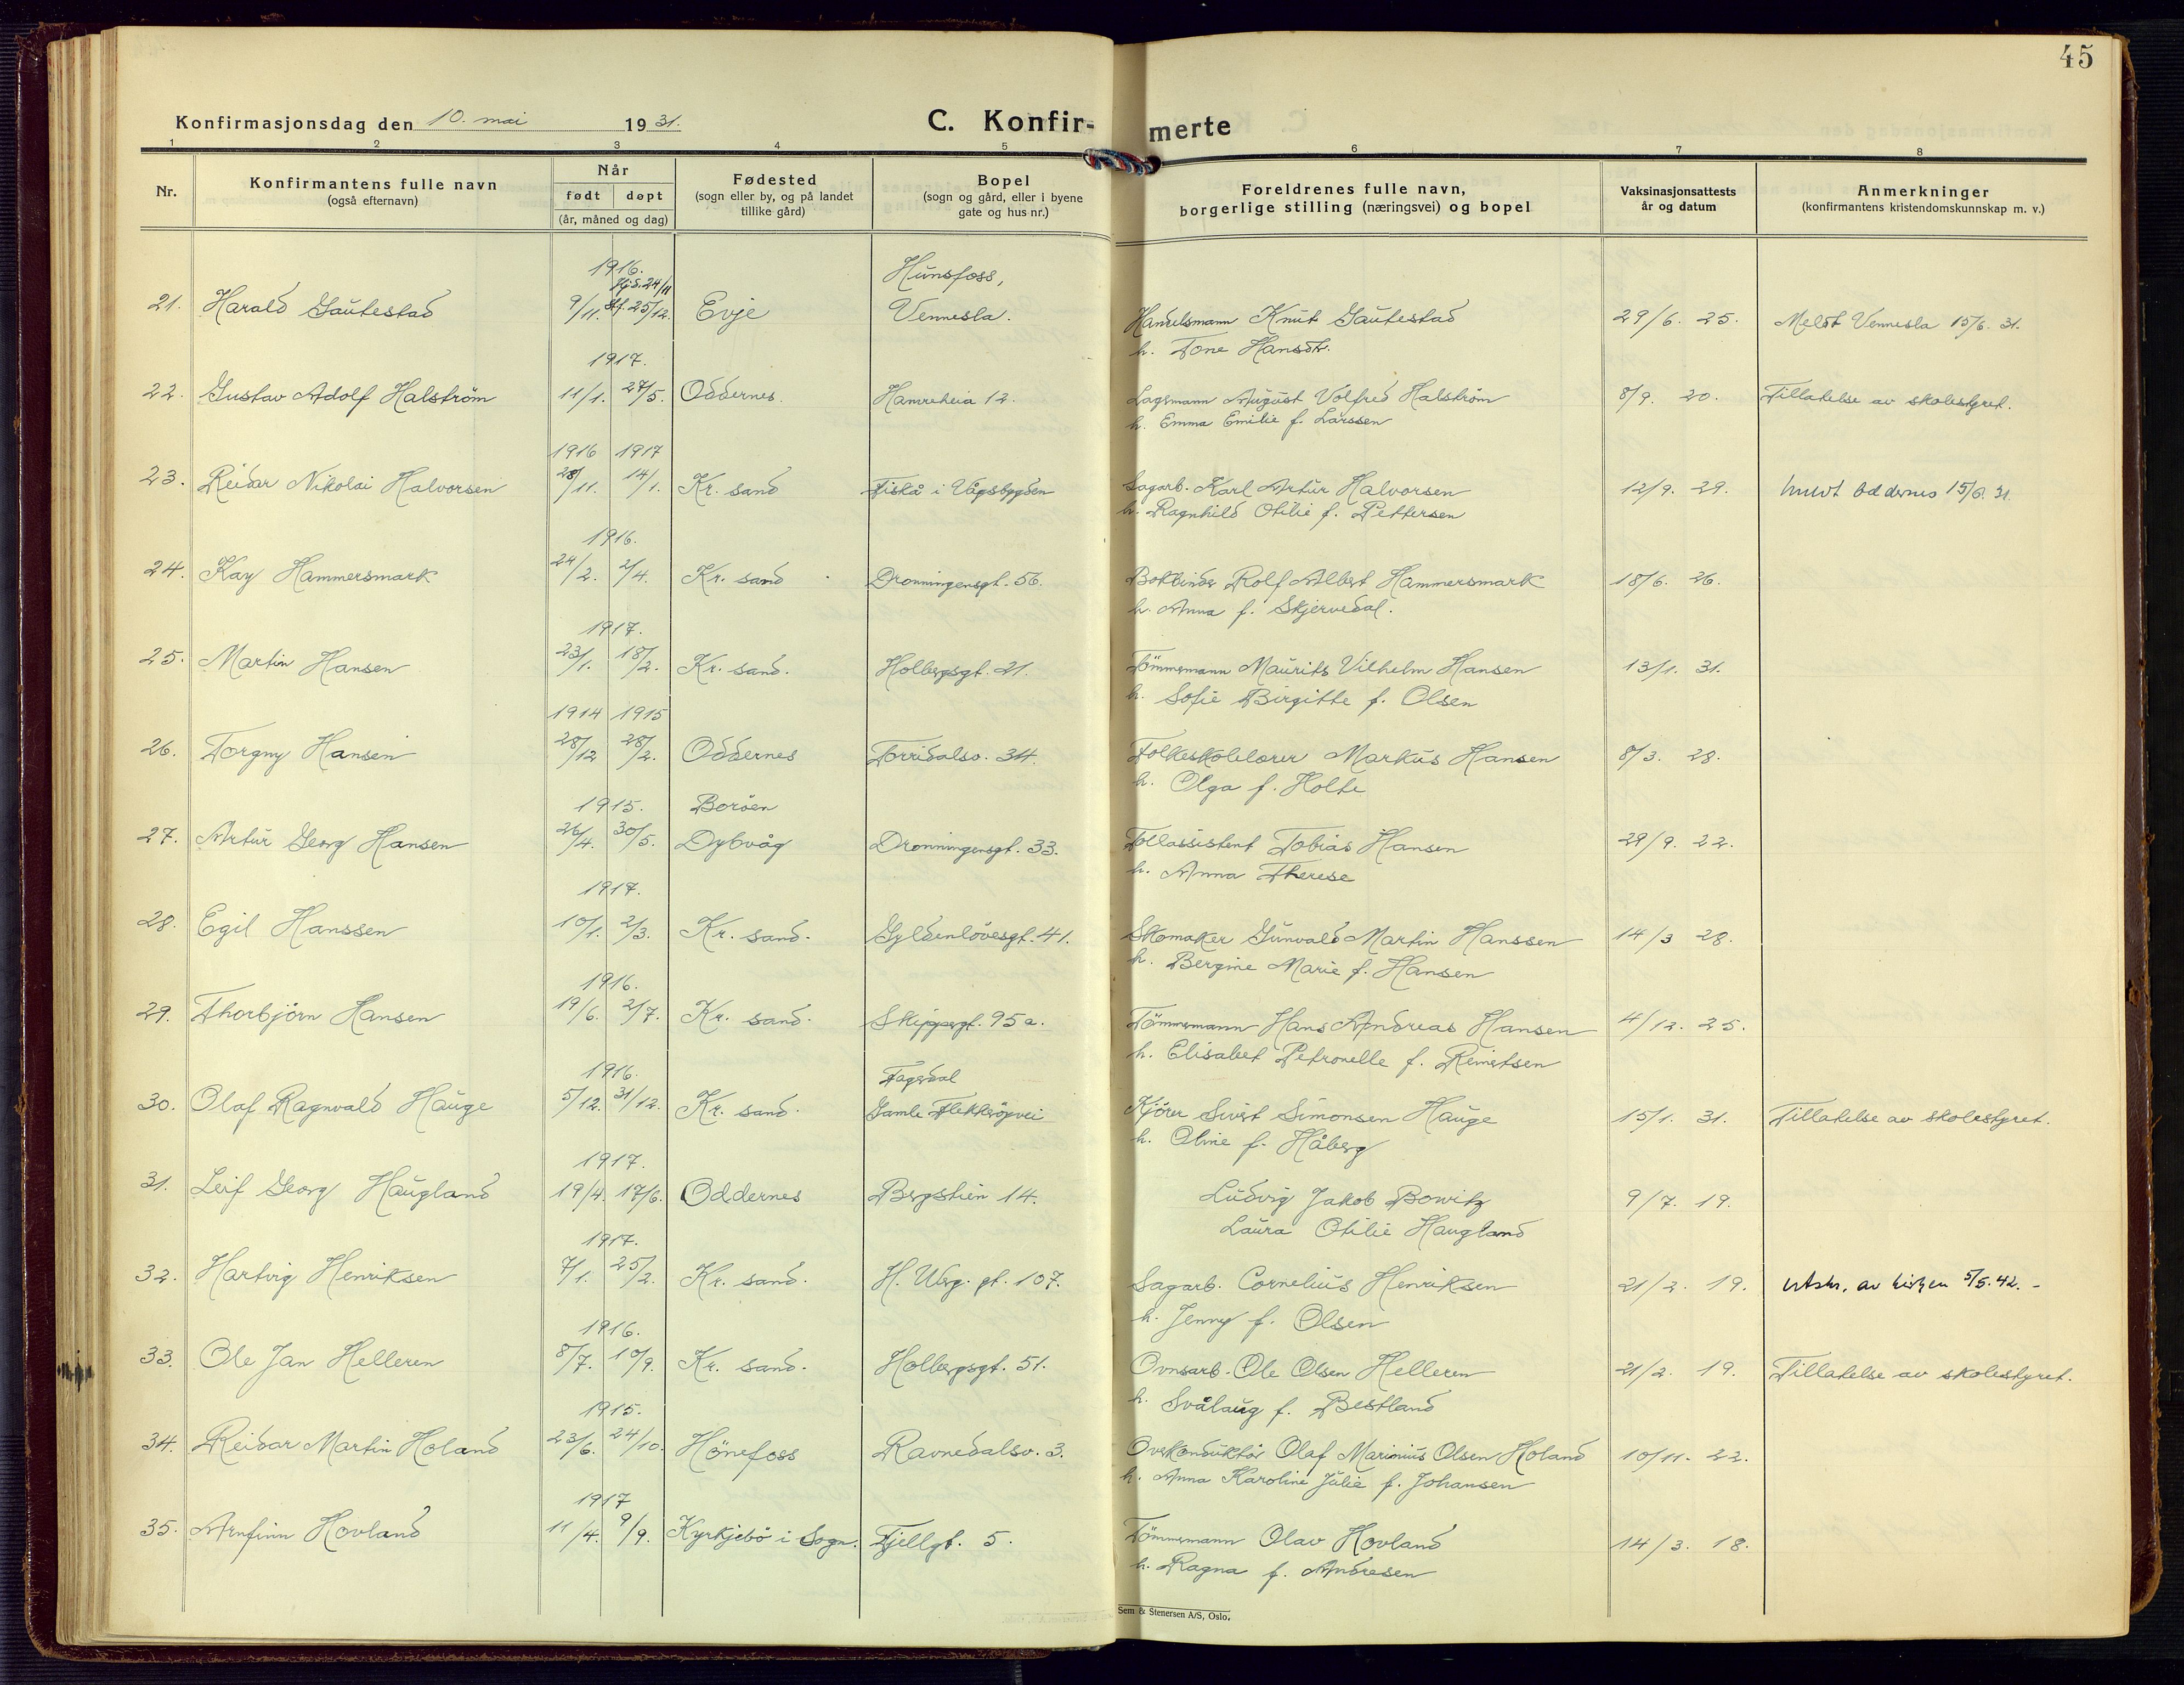 45
Konfirmasjonsdag den 10. mai 1931.
C. Konfirmerte
1 2 3 4 5 6 7 8
Nr.
Konfirmantens fulle navn
(også efternavn)
Når
født døpt
(år, måned og dag)
Fødested
(sogn eller by, og på landet
tillike gård)
Bopel
(sogn og gård, eller i byene
gate og hus nr.)
Foreldrenes fulle navn,
borgerlige stilling (næringsvei) og bopel
Vaksinasjonsattests
år og datum
Anmerkninger
(konfirmantens kristendomskunnskap m. v.)
1916. Hunsfoss,
Hjd. 24/11
21. Harald Gautestad 9/11. St. 25/12. Evje Vennesla. Handelsmann Knut Gautestad 29/6. 25. Meldt Vennesla 15/6. 31.
h. Tone Hansdtr.
1917.
22. Gustav Adolf Halström 11/1. 27/5. Oddernes. Hamreheia 12. Lagermann August Volfred Halström 8/9. 20. Tillatelse av skolestyret.
h. Emma Emilie f. Larssen
1916 1917
23. Reidar Nikolai Halvorsen 28/11. 14/1. Kr. sand Fiskå i Vågsbygden Sagarb. Karl Artur Halvorsen 12/9. 29. Meldt Oddernes 15/6. 31.
h. Ragnhild Otilie f. Pettersen
1916.
24. Kay Hammersmark 24/2. 2/4. Kr. sand Dronningensgt. 56. Bokbinder Rolf Albert Hammersmark 18/6. 26.
h. Anna f. Skjervedal.
1917.
25. Martin Hansen 23/1. 18/2. Kr. sand. Holbergsgt. 21. Tömmermann Maurits Vilhelm Hansen 13/1. 31.
h. Sofie Birgitte f. Olsen
1914 1915
26. Torgny Hansen 28/12 28/2. Oddernes Torridalsv. 34. Folkeskolelærer Markus Hansen 8/3. 28.
h. Olga f. Holte
1915. Boröen
27. Artur Georg Hansen 26/4. 30/5. Dybvåg Dronningensgt. 33. Tollassistent Tobias Hansen 29/9. 22.
h. Anna Therese
1917.
28. Egil Hanssen 10/1. 2/3. Kr. sand. Gyldenlövesgt. 41. Skomaker Gunvald Martin Hanssen 14/3 28.
h. Bergine Marie f. Hansen
1916.
29. Thorbjörn Hansen 19/6. 2/7. Kr. sand. Skippergt. 95a. Tömmermann Hans Andreas Hansen 4/12. 25.
h. Elisabet Petronelle f. Reinertsen
1916. Fagerdal
30. Olaf Ragnvald Hauge 5/12. 31/12. Kr. sand. Gamle Flekköyvei Kjörer Sivert Simonsen Hauge 15/1. 31. Tillatelse av skolestyret.
h. Oline f. Håberg
1917.
31. Leif Georg Haugland 19/4. 17/6. Oddernes Bergstien 14. Ludvig Jakob Bowitz 9/7. 19.
Laura Otilie Haugland
1917.
32. Hartvig Henriksen 7/1. 25/2. Kr. sand. H. Werg. gt. 107. Sagarb. Cornelius Henriksen 21/2. 19. Utskr. av kirken 5/5. 42. -
h. Jenny f. Olsen
1916.
33. Ole Jan Helleren 8/7. 10/9. Kr. sand. Holbergsgt. 51. Ovnsarb. Ole Olsen Helleren 21/2. 19. Tillatelse av skolestyret.
h. Svålaug f. Bestland
1915.
34. Reidar Martin Holand 23/6. 24/10. Hönefoss Ravnedalsv. 3. Overkonduktör Olaf Marinius Olsen Holand 10/11. 22.
h. Anna Karoline Julie f. Johansen
1917
35. Arnfinn Hovland 11/4. 9/9. Kyrkjebö i Sogn. Fjellgt. 5. Tömmermann Olav Hovland 14/3. 18.
h. Ragna f. Andresen
Sem & Stenersen A/S, Oslo.